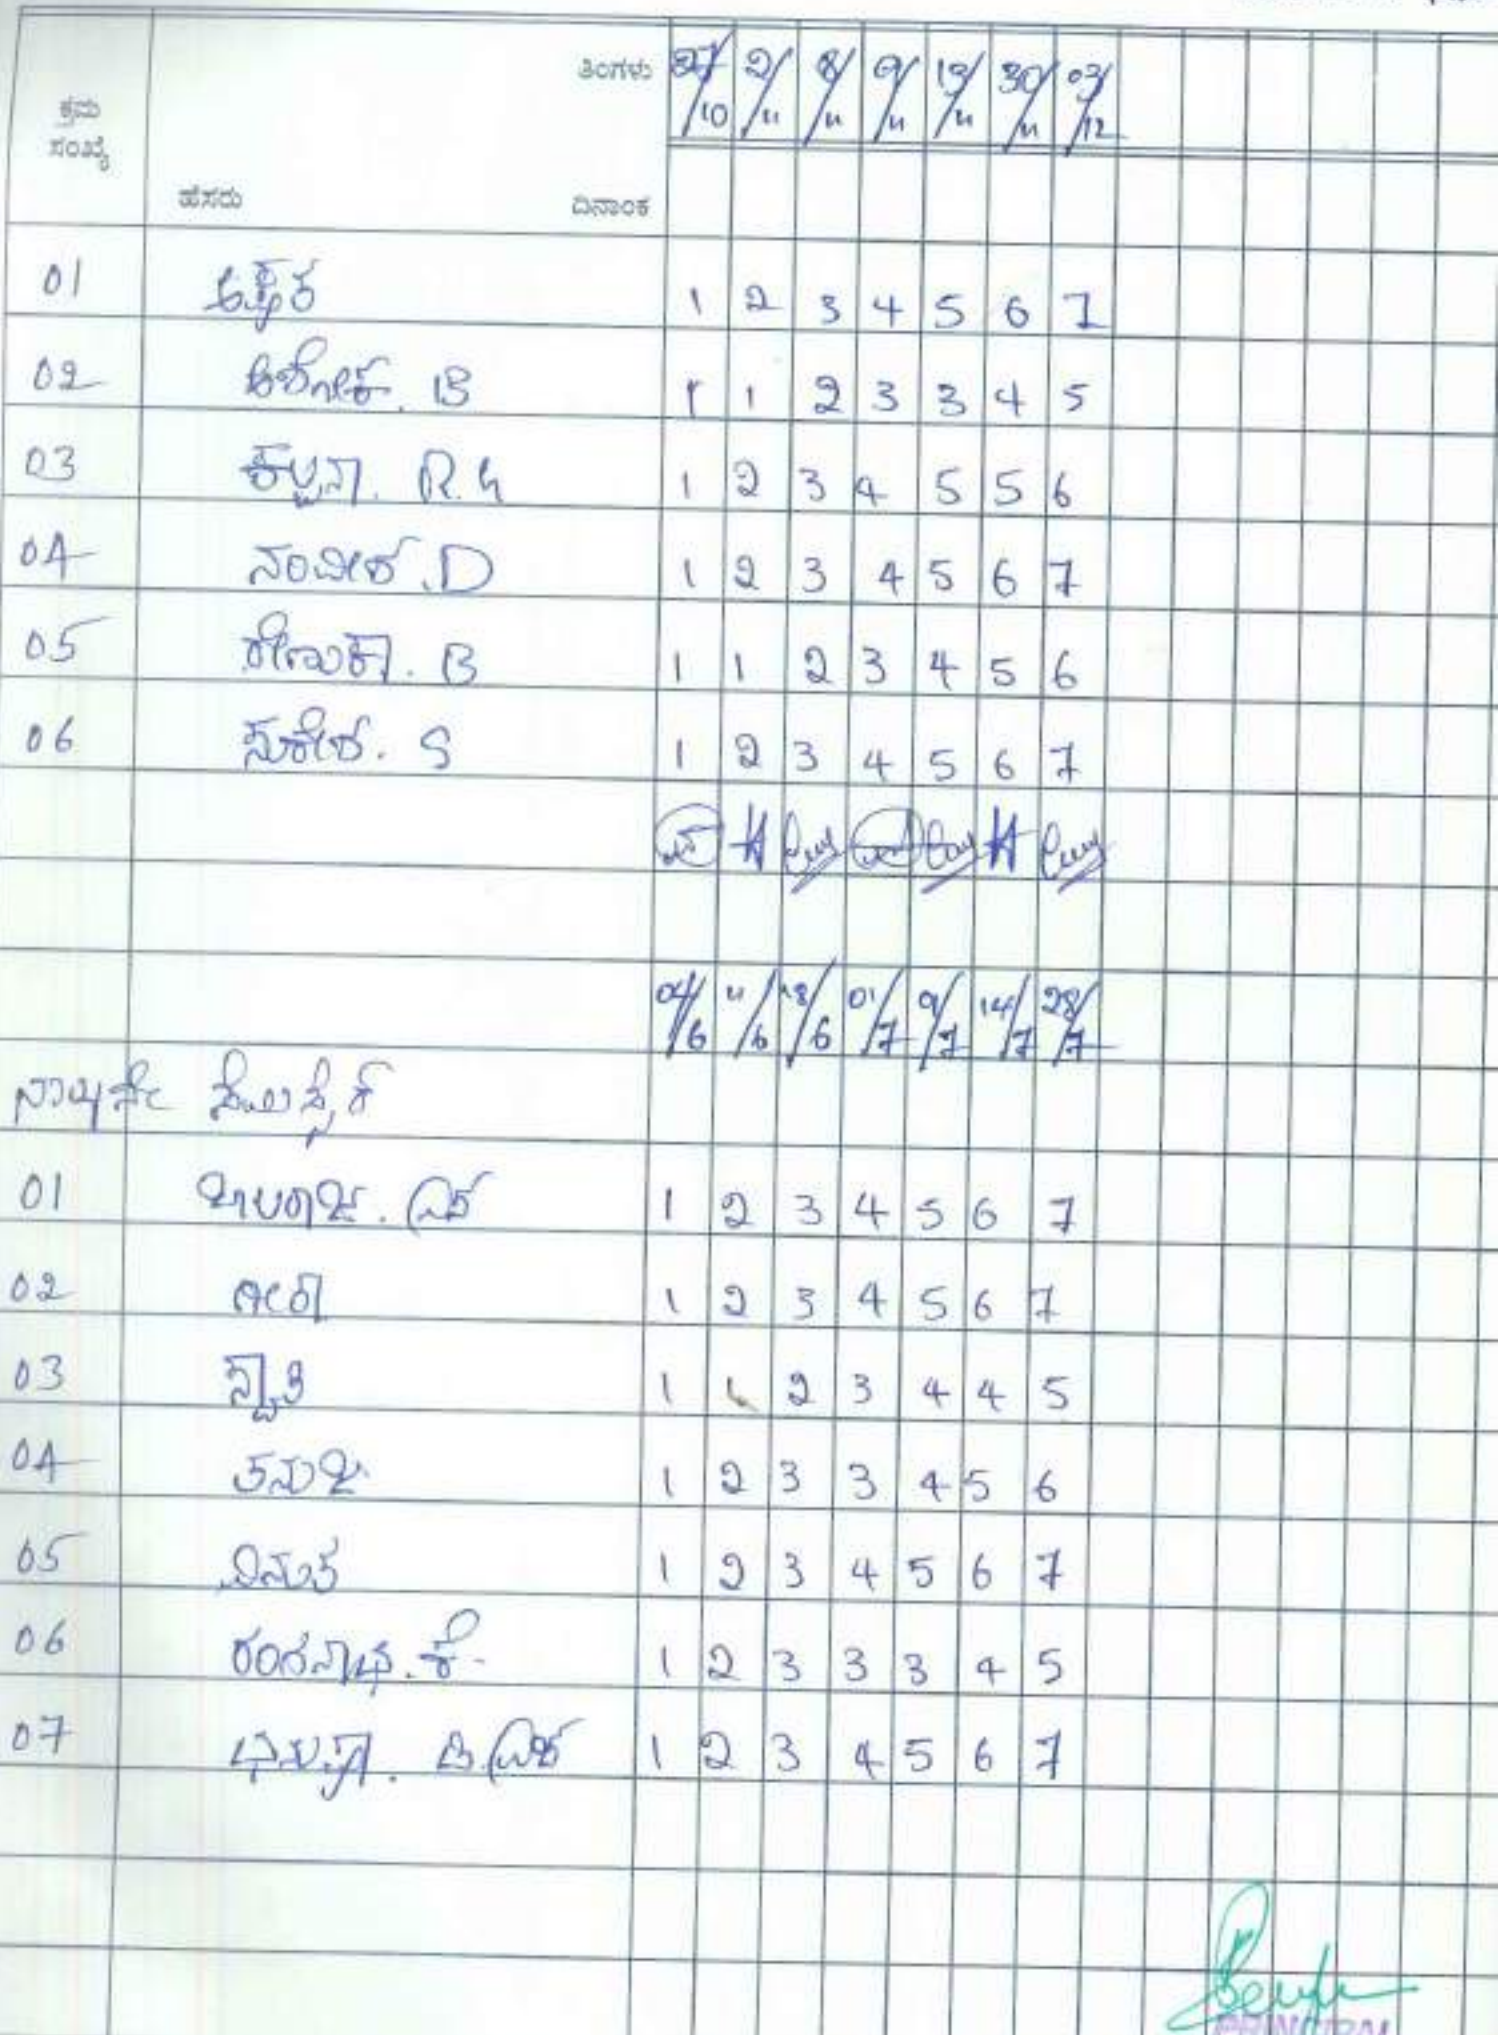 ತಿಂಗಳು 27/10 2/11 8/11 9/11 19/11 30/11 03/12
ಕ್ರಮ
ಸಂಖ್ಯೆ
ಹೆಸರು ದಿನಾಂಕ
01 1 2 3 4 5 6 7
02 ಅಶೋಕ್. B 1 1 2 3 3 4 5
03 ಕಲ್ಪನಾ. R. G 1 2 3 4 5 5 6
04 ನಂದೀಶ್. D 1 2 3 4 5 6 7
05 ರೇಣುಕಾ. B 1 1 2 3 4 5 6
06 ಸುರೇಶ್. S 1 2 3 4 5 6 7
04/6 11/6 18/6 01/7 9/7 14/7 28/7
ನಾಲ್ಕನೇ ಸೆಮಿಸ್ಟರ್
01 ಬಾಲರಾಜ. ಎಸ್ 1 2 3 4 5 6 7
02 1 2 3 4 5 6 7
03 ಸ್ವಾತಿ 1 1 2 3 4 4 5
04 ತನುಜ 1 2 3 3 4 5 6
05 ವಿನುತ 1 2 3 4 5 6 7
06 ರಂಗನಾಥ. ಕೆ. 1 2 3 3 3 4 5
07 1 2 3 4 5 6 7
PRINCIPAL